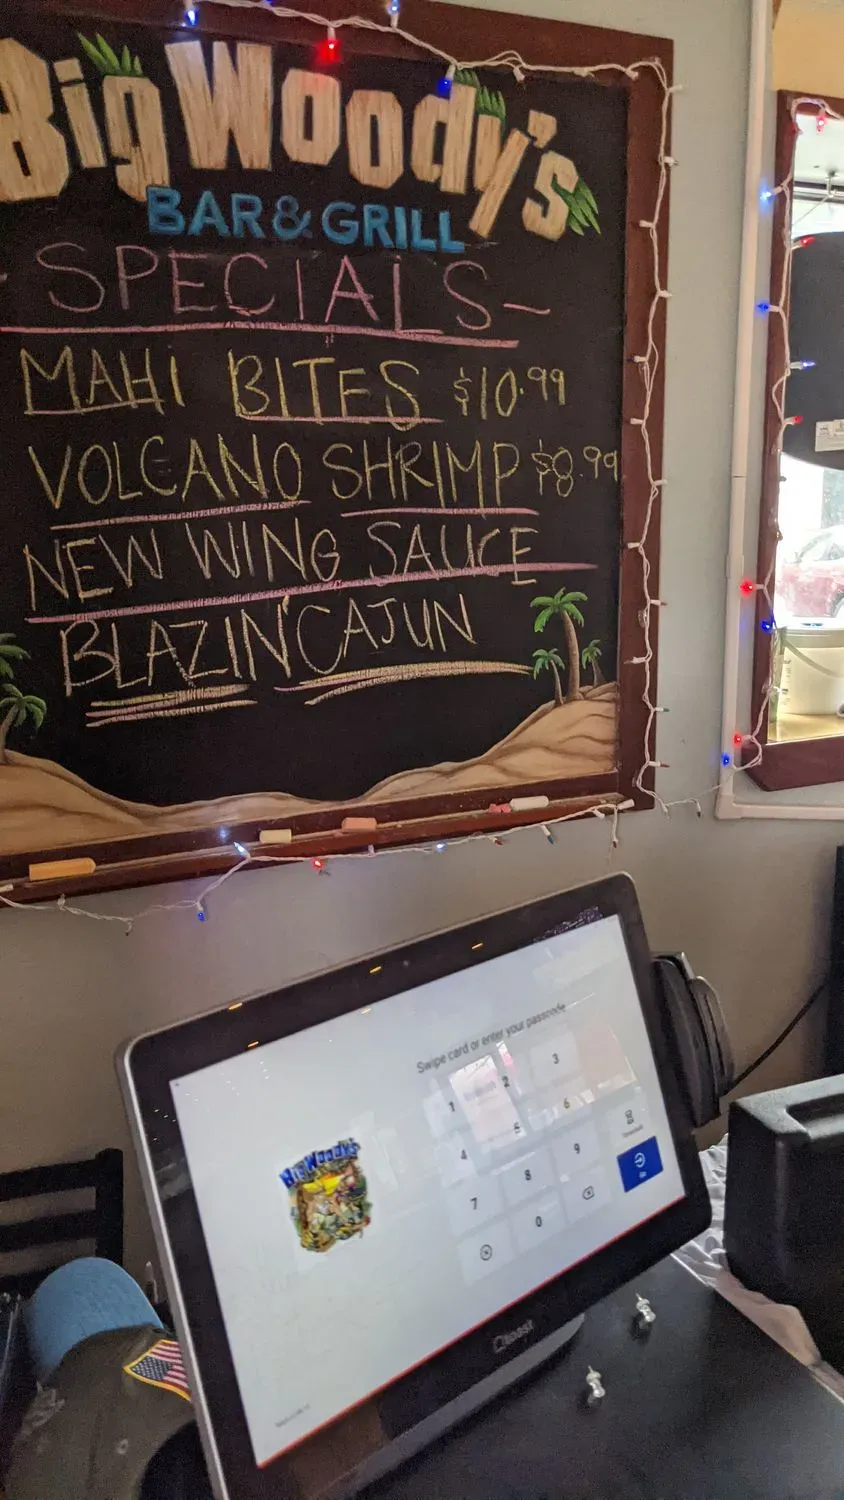 Big Woody's
BAR & GRILL
SPECIALS -
MAHI BITES $10.99
VOLCANO SHRIMP $8.99
NEW WING SAUCE
BLAZIN' CAJUN
Swipe card or enter your passcode
1 2 3
4 5 6
7 8 9
0
BIG WOODY'S
toast